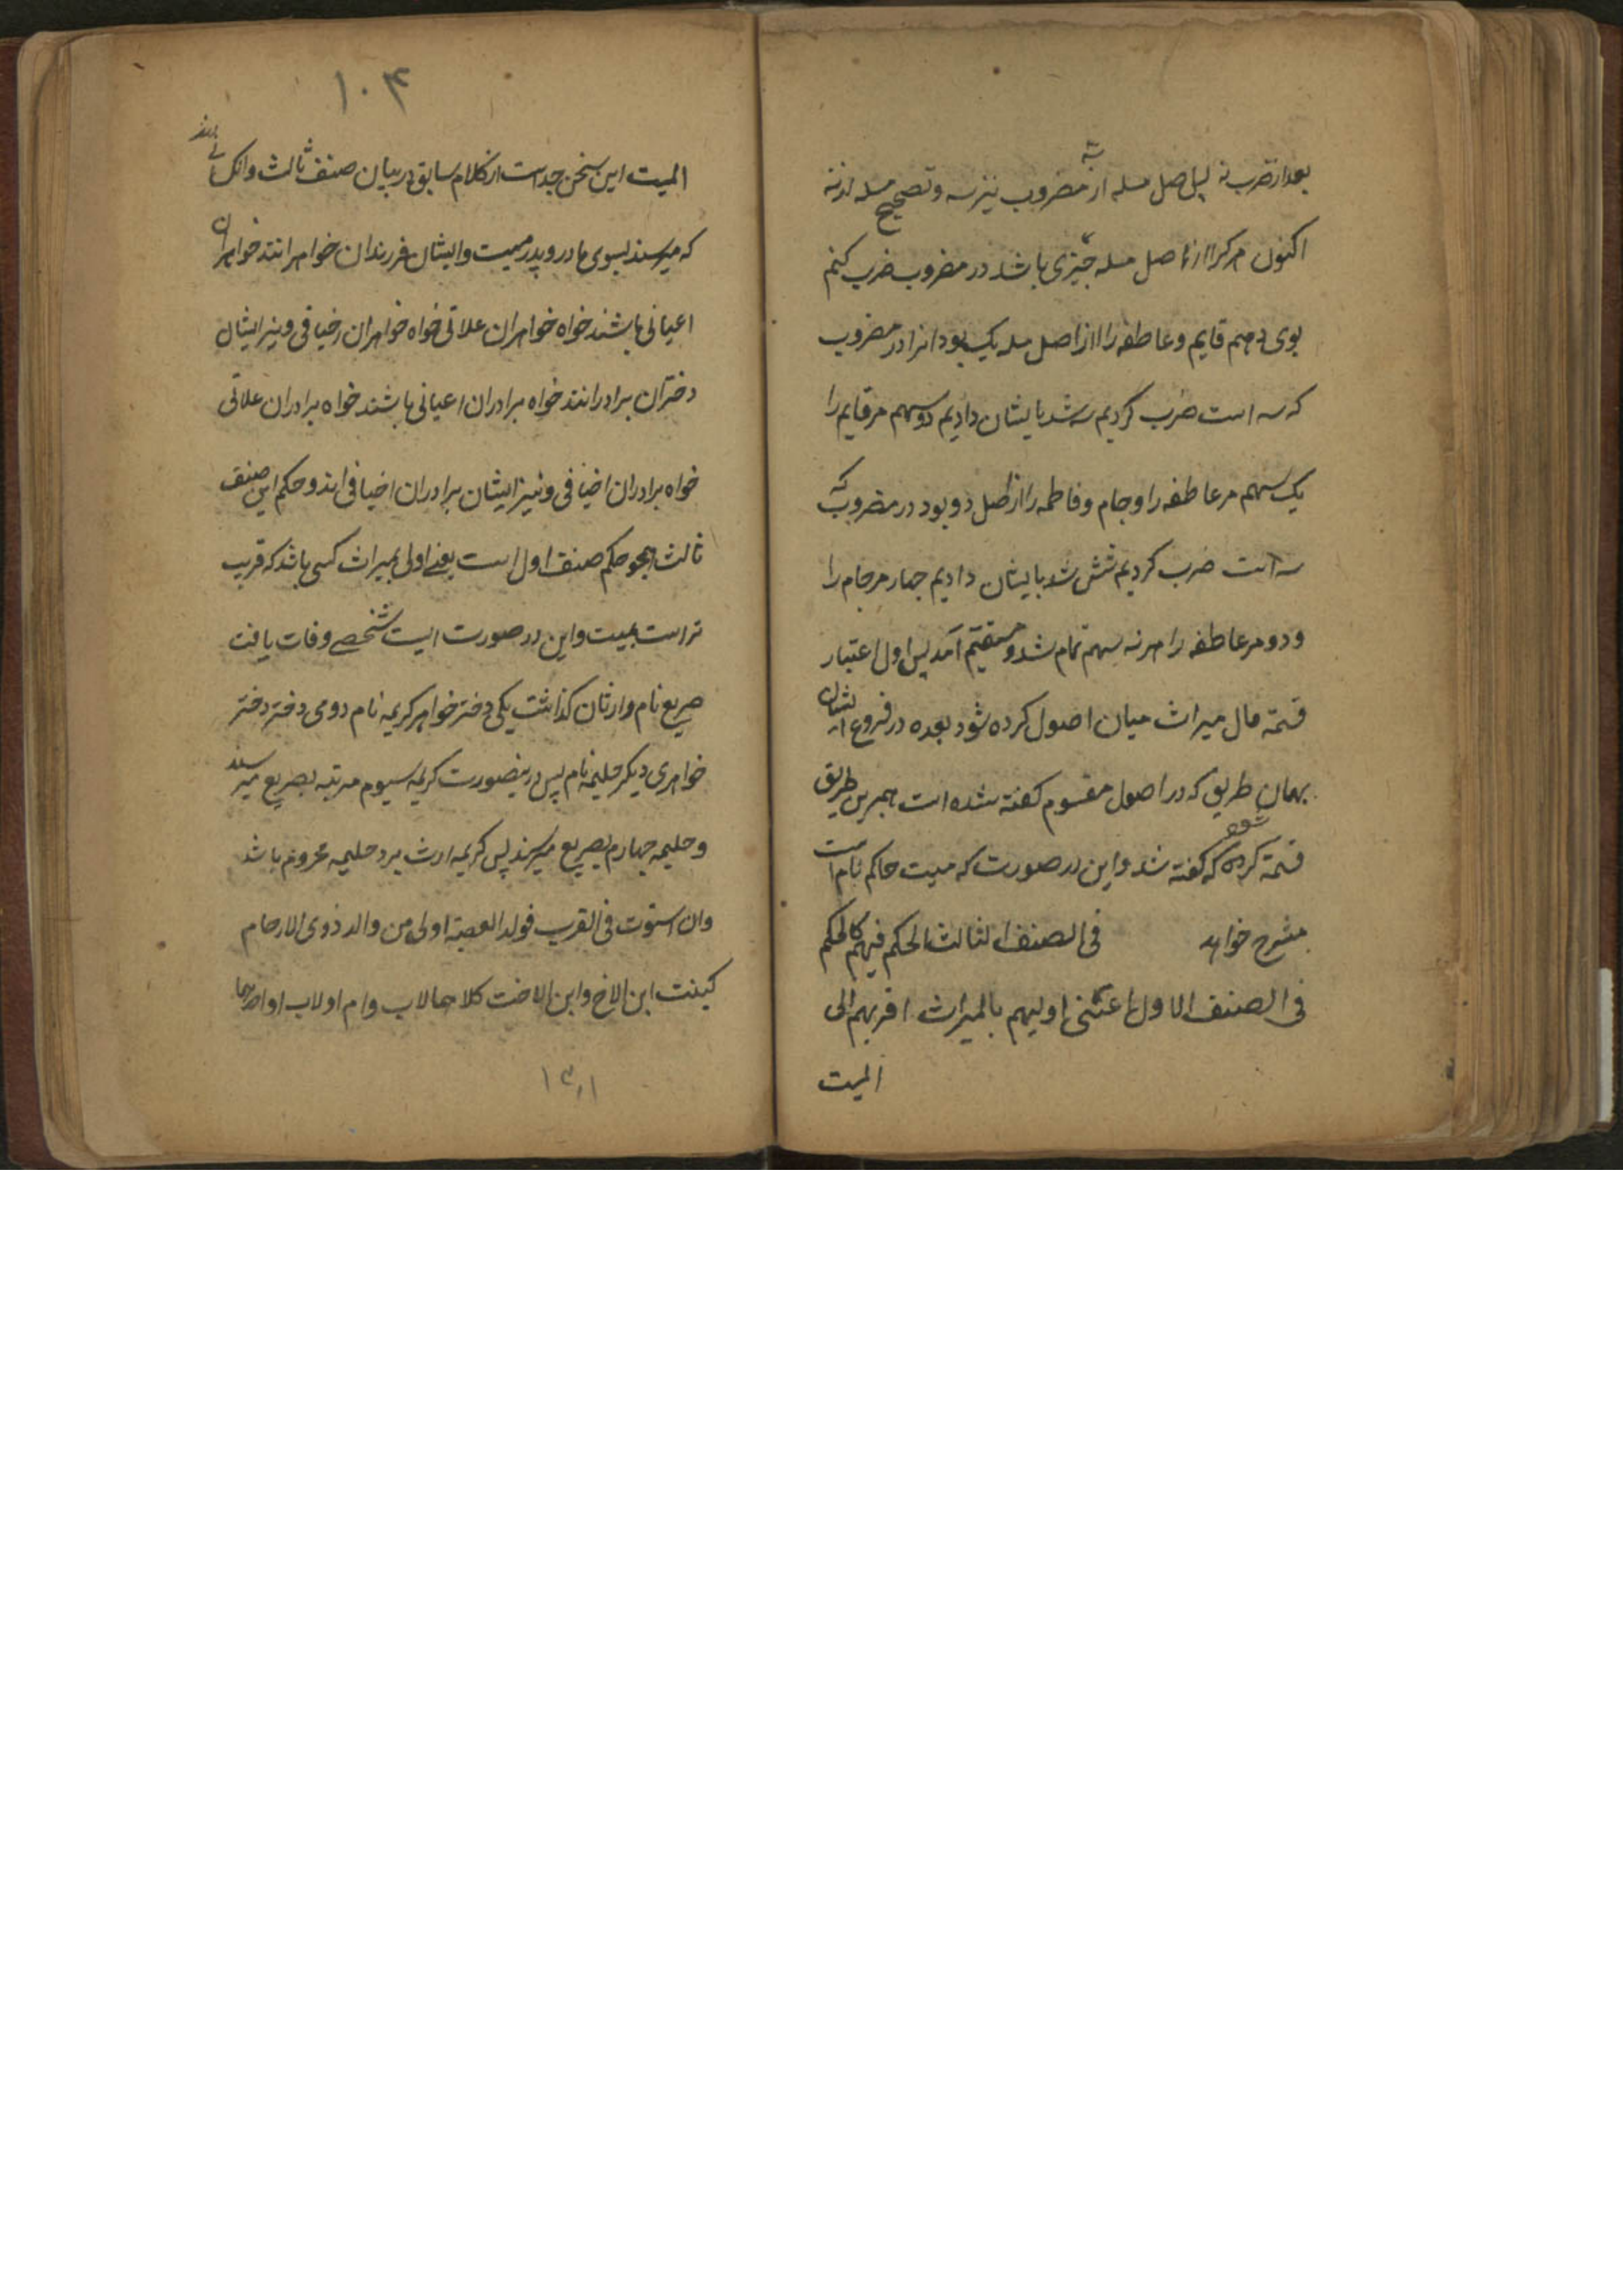 بعد از ضرب نه پس اصل مسله از سه مضروب نیز سه و تصحیح مسله از نه
اکنون هر کرا از اصل مسله چیزی باشد در مضروب ضرب کنم
بوی دهم قایم و عاطفه را از اصل مسله یک بود انرا در مضروب
که سه است ضرب کردیم سه شد بایشان دادیم دو سهم مر قایم را
یک سهم مر عاطفه را و جام و فاطمه را از اصل دو بود در مضروب که
سه است ضرب کردیم شش شد بایشان دادیم چهار مر جام را
و دو مر عاطفه را هر نه سهم تمام شد و مستقیم آمد پس اول اعتبار
قسمة مال میراث میان اصول کرده شود بعده در فروع ایشان
بهمان طریق که در اصول مقسوم کفته شده است همبرین طریق
قسمة کرده شود که کفته شد و این در صورت که میت حاکم نام است
مشرح خواهد فی الصنف الثالث الحکم فیهم کالحکم
فی الصنف الاول اعنی اولیهم بالمیراث اقربهم الی
المیت
۱۰۴
المیت این سخن جداست از کلام سابق در بیان صنف ثالث وانک
که میرسند بسوی مادر و پدر میت و ایشان فرزندان خواهرانند خواهران
اعیانی باشند خواه خواهران علاتی خواه خواهران اخیافی و نیز ایشان
دختران برادرانند خواه برادران اعیانی باشند خواه برادران علاتی
خواه برادران اخیافی و نیز ایشان برادران اخیافی اند و حکم این صنف
ثالث همچو حکم صنف اول است یعنی اولی بمیراث کسی باشد که قریب
تر است بمیت و این در صورت ایست شخصی وفات یافت
صریع نام وارثان کذاشت یکی دختر خواهر کریمه نام دومی دختر دختر
خواهری دیکر حلیمه نام پس درینصورت کریمه سیوم مرتبه بصریع میرسد
و حلیمه چهارم بصریع میرسند پس کریمه ارث برد حلیمه محروم باشد
وان استوت فی القرب فولد العصبة اولی من والد ذوی الارحام
کبنت ابن الاخ وابن الاخت کلاهما لاب وام او لاب او احدهما